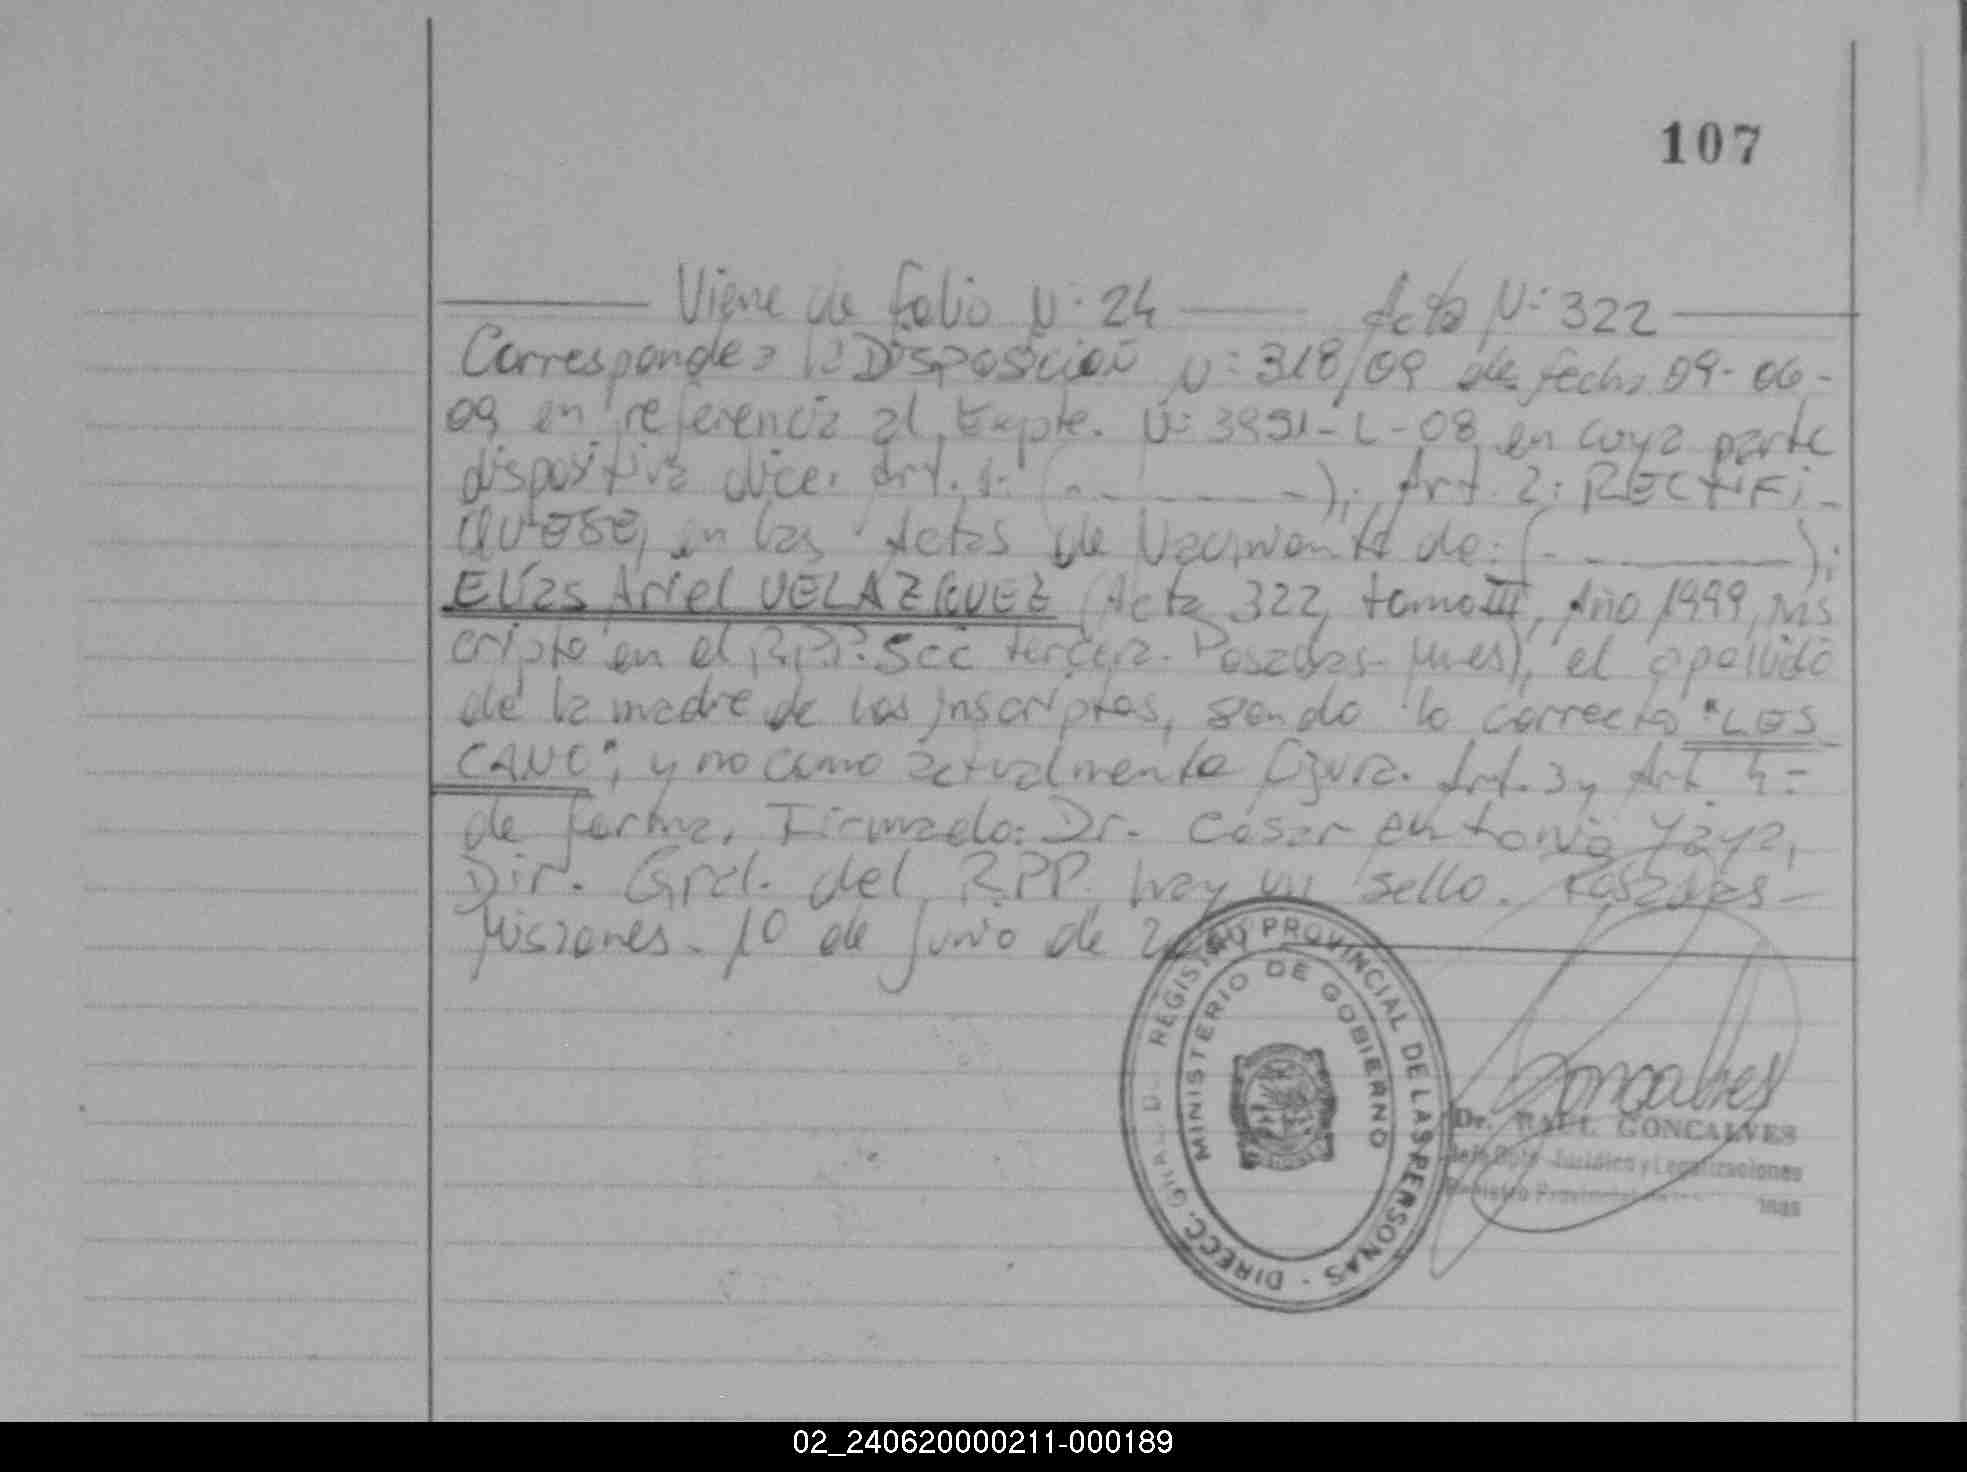 107
Viene de folio N: 24 Acta N: 322
Corresponde a la Disposicion N: 318/09 de fecha 09-06-
09 en referencia al Expte. N: 3991-L-08 en cuya parte
dispositiva dice: Art. 1: (- - - - - -); Art. 2: RECTIFI-
QUESE, en las Actas de Nacimiento de: (- - - - -);
Elias Ariel VELAZQUEZ (Acta 322, tomo III, Año 1999, ins
cripto en el R.P.P. Scc tercera. Posadas- Mnes), el apellido
de la madre de los inscriptos, siendo lo correcto "LES
CANO", y no como actualmente figura. Art. 3 y Art 4:
de forma. Firmado: Dr. Cesar Antonio Yaya,
Dir. Gral. del RPP. hay un sello. Posadas-
Misiones. 10 de Junio de
DIRECC. GRAL. D REGISTRO PROVINCIAL DE LAS PERSONAS -
MINISTERIO DE GOBIERNO
Goncalves
Dr. RAUL GONCALVES
Jefe Dpto. Jurídico y Legalizaciones
Registro Provincial
02_240620000211-000189